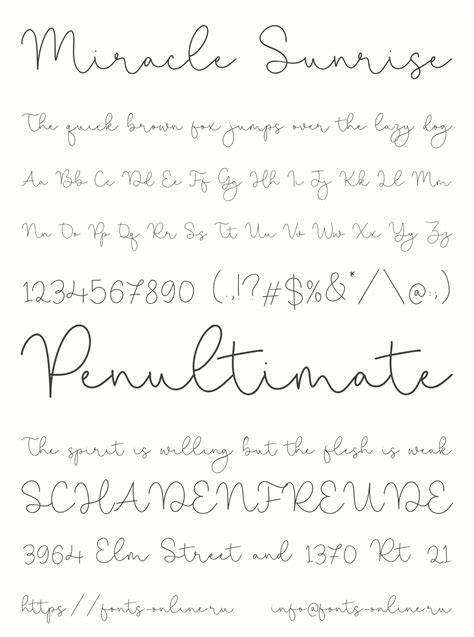 Miracle Sunrise
The quick brown fox jumps over the lazy dog
Aa Bb Cc Dd Ee Ff Gg Hh Ii Jj Kk Ll Mm
Nn Oo Pp Qq Rr Ss Tt Uu Vv Ww Xx Yy Zz
1234567890 (.,!?#$%&*/\@:;)
Penultimate
The spirit is willing but the flesh is weak
SCHADENFREUDE
3964 Elm Street and 1370 Rt. 21
https://fonts-online.ru info@fonts-online.ru